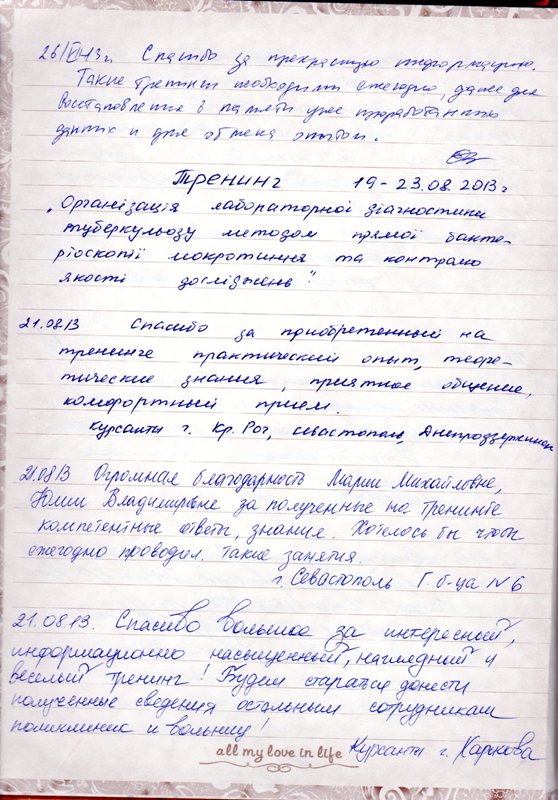 26/VI 13г. Спасибо за прекрасную информацию.
Такие тренинги необходимы ежегодно, даже для
восстановления в памяти уже проработанных
данных и для обмена опытом.
Тренинг 19-23.08 2013г
„Організація лабораторної діагностики
туберкульозу методом прямої бакте-
ріоскопії мокротиння та контролю
якості досліджень"
21.08.13 Спасибо за приобретенный на
тренинге практический опыт, теоре-
тические знания, приятное общение,
комфортный прием.
Курсанты г. Кр. Рог, Севастополь, Днепродзержинск
21.08 13 Огромная благодарность Марии Михайловне,
Юлии Владимировне за полученные на тренинге
компетентные ответы, знания. Хотелось бы чтобы
ежегодно проводил. такие занятия.
г. Севастополь Г. б-ца N 6
21.08.13. Спасибо большое за интересный,
информационно насыщенный, наглядний и
веселый тренинг! Будем старатся донести
полученные сведения остальным сотрудникам
поликлиник и больниц!
Курсанты г. Харькова
all my love in life